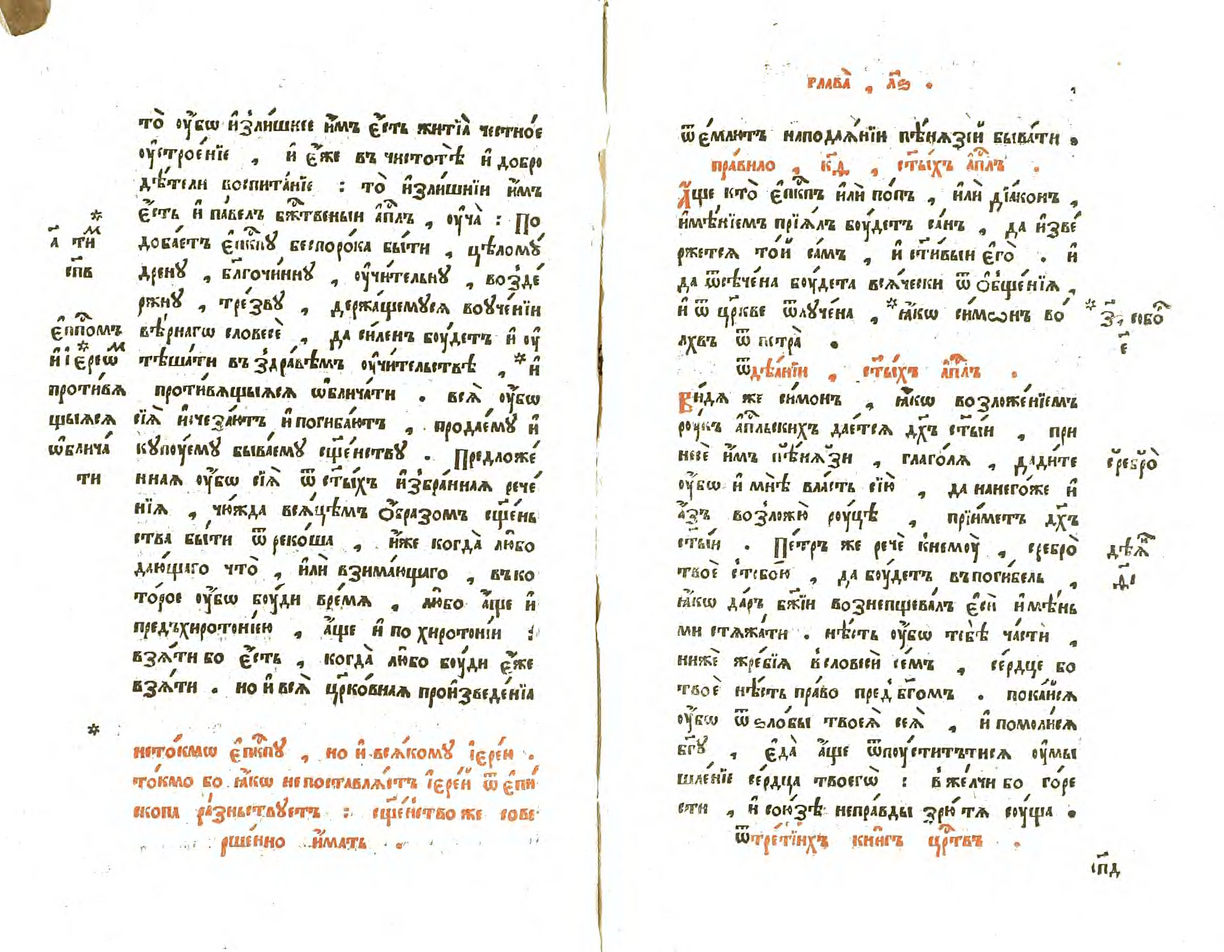 то̀ ᲂу҆́бѡ и҆зли́шнее и҆̀мъ є҆́сть житїѧ̀ че́стное
ᲂу҆строе́нїе , и҆ є҆́же въ чистотѣ̀ и҆ добро
дѣ́тели воспита́нїе : то̀ и҆зли́шнїи и҆̀мъ
*
є҆́сть и҆ па́велъ бж҃твеныи а҆пⷭ҇лъ , ᲂу҆ча̀ : По
а҃ тиⷨ
доба́етъ є҆пⷭ҇кпꙋ беспоро́ка бы́ти , цѣ́ломꙋ
сп҃в
дренꙋ , бл҃гочи́ннꙋ , ᲂу҆чи́тельнꙋ , возде́
ржнꙋ , тре́звꙋ , держа́щемꙋсѧ воᲂуче́нїи
є҆пⷭ҇помъ
вѣ́рнагѡ словесѐ , да си́ленъ бꙋ́детъ и҆ ᲂу҆
* и҆ і҆ерѡⷨ
тѣша́ти въ здра́вѣмъ ᲂу҆чи́тельствѣ , * и҆
противѧ
проти́вѧщыѧсѧ ѡ҆блича́ти . всѧ̀ ᲂу҆́бѡ
щыѧсѧ
сїѧ̀ и҆счеза́ютъ и҆ погиба́ютъ , продае́мꙋ и҆
ѡ҆блича
кꙋпоꙋ́емꙋ быва́емꙋ сщ҃е́нствꙋ . Предложе́
ти
нная ᲂу҆́бѡ сїѧ̀ ѿ ст҃ы́хъ и҆збра́нная рече́
нїѧ , чю́жда всѧ́цѣмъ ѻ҆́бразомъ сщ҃е́нь
ства бы́ти ѿреко́ша , и҆́же когда̀ лю́бо
даю́щаго что̀ , и҆лѝ взима́ющаго , въко
торое ᲂу҆́бѡ боꙋ́ди вре́мѧ , лю́бо а҆́ще и҆
предъхиротоні́ею , а҆́ще и҆ по хиротоні́и :
взѧ́ти бо є҆́сть , когда̀ лю́бо боꙋ́ди є҆́же
взѧ́ти . но и҆ всѧ̀ цр҃ко́вная произведе́нїа
*
нето́кмѡ є҆пⷭ҇кпꙋ , но и҆ всѧ́комꙋ і҆ере́и .
то́кмо бо ꙗ҆́кѡ непоставлѧ́етъ і҆ере́й ѿ є҆пи́
скопа ра́зньствꙋетъ : сщ҃е́нство же сове
рше́нно и҆́мать .
глава̀ , л҃ѕ .
ѿе́млютъ наподаѧ́нїи пѣ́нѧзїй быва́ти .
пра́вило , к҃д , ст҃ы́хъ а҆пⷭ҇лъ .
А҆́ще кто̀ є҆пⷭ҇кпъ и҆лѝ по́пъ , и҆лѝ дїа́конъ ,
и҆мѣ́нїемъ прїѧ́лъ боꙋ́детъ са́нъ , да и҆зве́
ржетсѧ то́й са́мъ , и҆ ст҃и́выи є҆го̀ . и҆
да ѿсѣче́на боꙋ́дета всѧ́чески ѿ ѻ҆бще́нїѧ ,
и҆ ѿ цр҃кве ѿлꙋче́на , * ꙗ҆́кѡ симѡ́нъ во́
* з҃ , собоⷬ
лхвъ ѿ петра̀ .
є҃
ѿдѣѧ́нїи , ст҃ы́хъ а҆пⷭ҇лъ .
Ви́дѧ же си́монъ , ꙗ҆́кѡ возложе́нїемъ
роꙋ́къ а҆пⷭ҇льскихъ дае́тсѧ дх҃ъ ст҃ы́и , при
несѐ и҆̀мъ пѣ́нѧзи , глаго́лѧ , дади́те
сребро̀
ᲂу҆́бѡ и҆ мнѣ̀ вла́сть сїю̀ , да нанего́же и҆
а҆́зъ возложю̀ роꙋ́цѣ , прїи́метъ дх҃ъ
ст҃ы́и . Пе́тръ же речѐ кнемоꙋ̀ , сребро̀
дѣѧⷩ҇
твоѐ стобо́ю , да боꙋ́детъ въпоги́бель ,
д҃і
ꙗ҆́кѡ да́ръ бж҃їи вознепщева́лъ є҆сѝ и҆мѣ́нь
ми стѧжа́ти . нѣ́сть ᲂу҆́бѡ тебѣ̀ ча́сти ,
нижѐ жре́бїѧ всловесѝ се́мъ , се́рдце бо
твоѐ нѣ́сть пра́во пред̾ бг҃омъ . пока́йсѧ
ᲂу҆́бѡ ѿ ѕло́бы твоеѧ̀ сеѧ̀ , и҆ помоли́сѧ
бг҃ꙋ , є҆да̀ а҆́ще ѿпоꙋ́ститътисѧ ᲂу҆мы
шле́нїе се́рдца твоегѡ̀ : вже́лчи бо го́ре
сти , и҆ сою́зѣ непра́вды зрю́ тѧ соꙋ́ща .
ѿтре́тїихъ кни́гъ цр҃твъ .
сп҃д